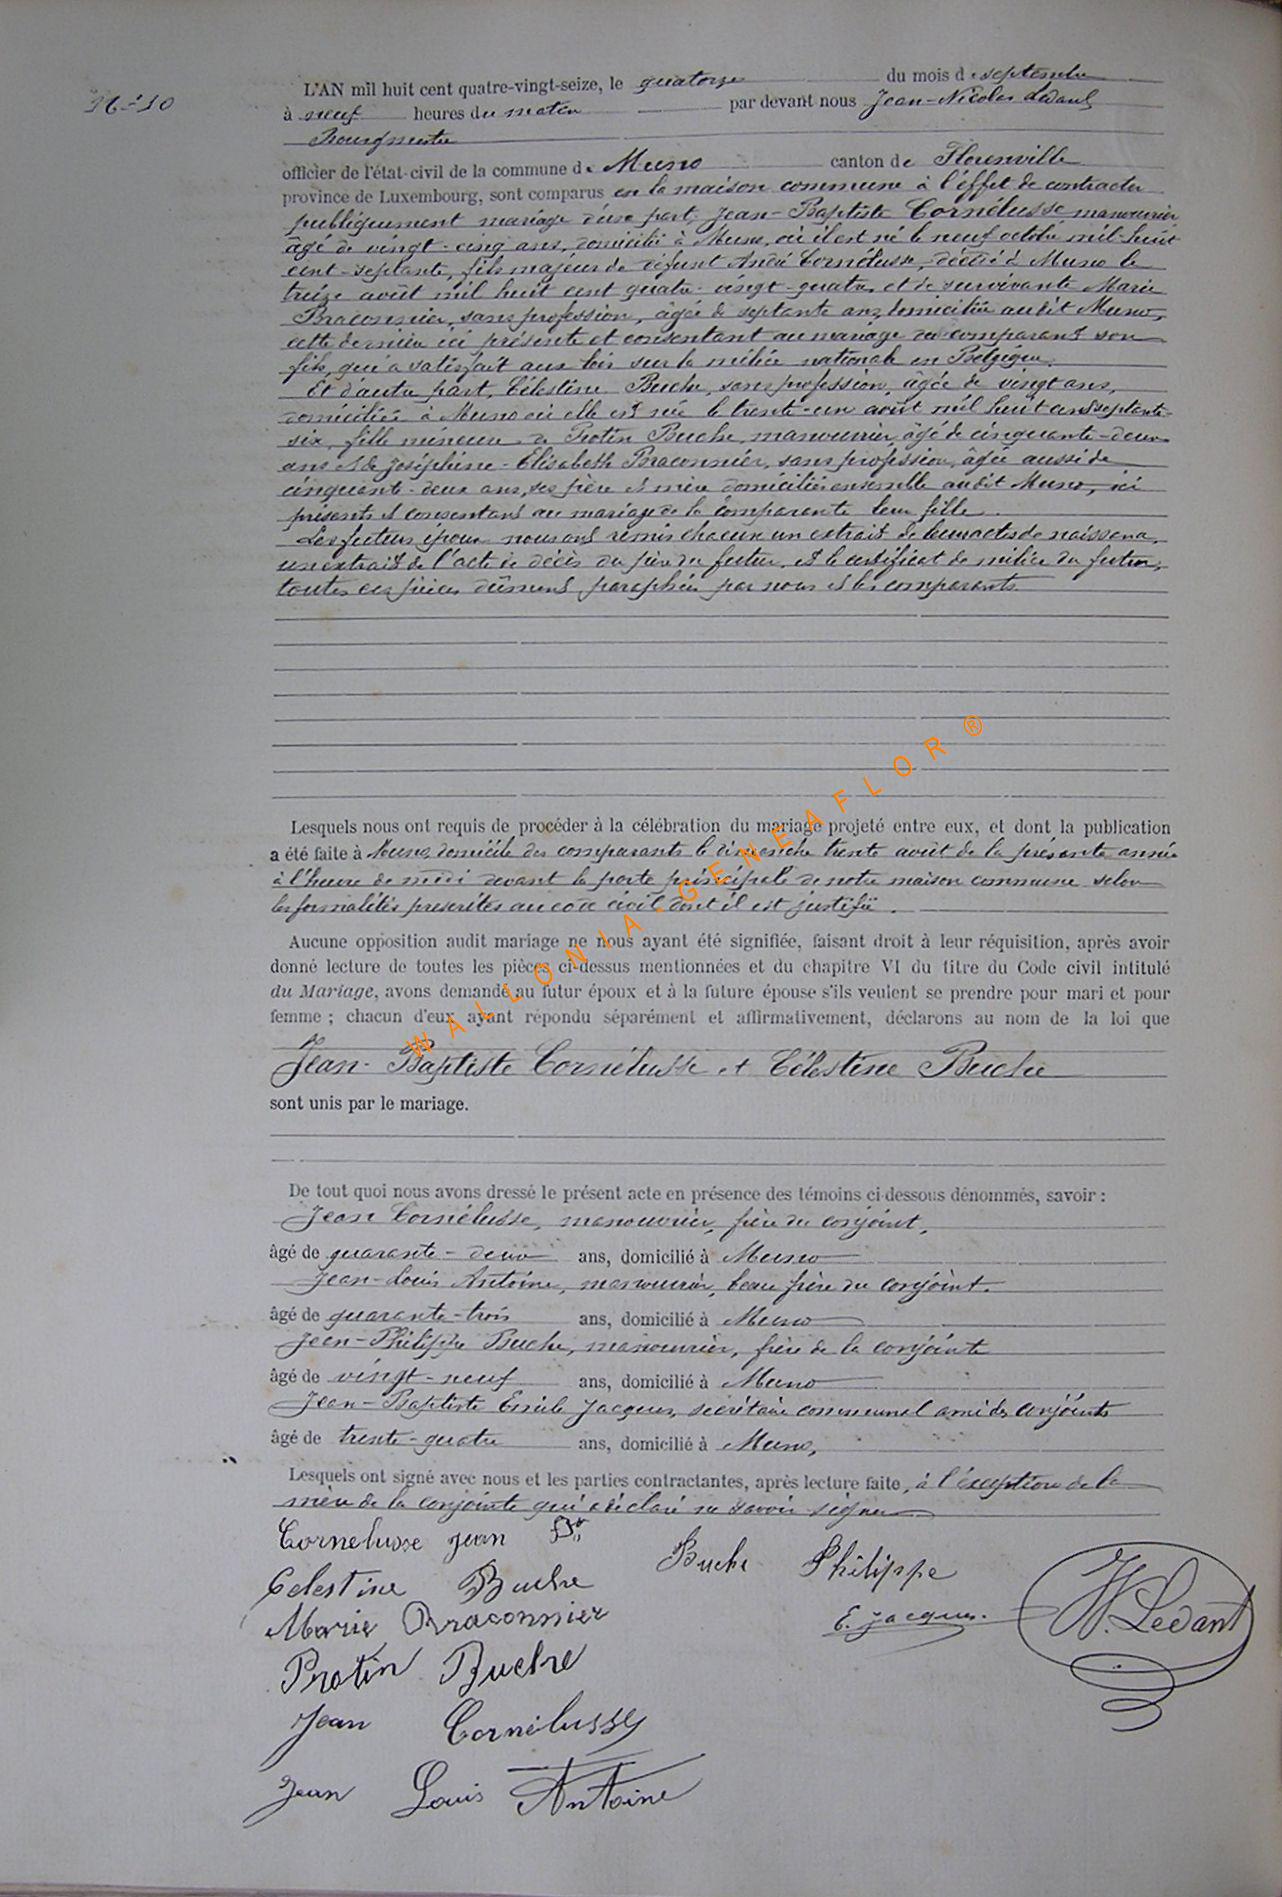 N° 10
L'AN mil huit cent quatre-vingt-seize, le quatorze du mois de septembre
à neuf heures du matin par devant nous Jean-Nicolas Ledant
Bourgmestre
officier de l'état-civil de la commune de Muno canton de Florenville
province de Luxembourg, sont comparus en la maison commune à l'effet de contracter
publiquement mariage d'une part, Jean-Baptiste Cornélusse manouvrier
âgé de vingt-cinq ans, domicilié à Muno, où il est né le neuf octobre mil-huit
cent-septante, fils majeur de défunt André Cornélusse, décédé à Muno le
treize août mil huit cent quatre-vingt-quatre, et de survivante Marie
Braconnier, sans profession, âgée de septante ans, domiciliée audit Muno,
cette dernière ici présente et consentant au mariage du comparant son
fils, qui a satisfait aux lois sur la milice nationale en Belgique.
Et d'autre part, Célestine Buche, sans profession, âgée de vingt ans,
domiciliée à Muno où elle est née le trente-un août mil huit cent septante-
six, fille mineure de Protin Buche, manouvrier, âgé de cinquante-deux
ans et de Joséphine-Elisabeth Braconnier, sans profession, âgée aussi de
cinquante-deux ans, ses père et mère domiciliés ensemble audit Muno, ici
présents et consentant au mariage de la comparante leur fille.
Les futurs époux nous ont remis chacun un extrait de leurs actes de naissance,
un extrait de l'acte de décès du père du futur, et le certificat de milice du futur,
toutes ces pièces dûment paraphées par nous et les comparants.
Lesquels nous ont requis de procéder à la célébration du mariage projeté entre eux, et dont la publication
a été faite à Muno, domicile des comparants le dimanche trente août de la présente année
à l'heure de midi devant la porte principale de notre maison commune selon
les formalités prescrites au code civil dont il est justifié.
Aucune opposition audit mariage ne nous ayant été signifiée, faisant droit à leur réquisition, après avoir
donné lecture de toutes les pièces ci-dessus mentionnées et du chapitre VI du titre du Code civil intitulé
du Mariage, avons demandé au futur époux et à la future épouse s'ils veulent se prendre pour mari et pour
femme ; chacun d'eux ayant répondu séparément et affirmativement, déclarons au nom de la loi que
Jean-Baptiste Cornélusse et Célestine Buche
sont unis par le mariage.
De tout quoi nous avons dressé le présent acte en présence des témoins ci-dessous dénommés, savoir :
Jean Cornélusse, manouvrier, frère du conjoint,
âgé de quarante-deux ans, domicilié à Muno
Jean-Louis Antoine, manouvrier, beau frère du conjoint.
âgé de quarante-trois ans, domicilié à Muno
Jean-Philippe Buche, manouvrier, frère de la conjointe
âgé de vingt-neuf ans, domicilié à Muno
Jean-Baptiste Emile Jacques, secrétaire communal ami des conjoints
âgé de trente-quatre ans, domicilié à Muno,
Lesquels ont signé avec nous et les parties contractantes, après lecture faite, à l'exception de la
mère de la conjointe qui a déclaré ne savoir signer.
Cornelusse Jean Bte
Celestine Buche
Buche Philippe
Marie Braconnier
E. Jacques.
N. Ledant
Protin Buche
Jean Cornélusse
Jean Louis Antoine
WALLONIA-GENEAFLOR®